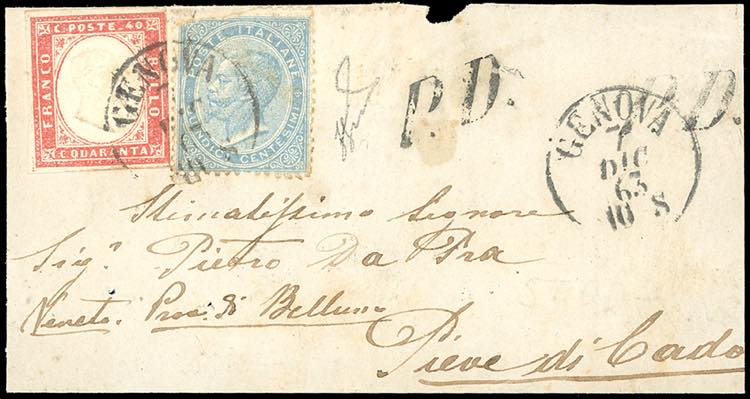 C. POSTE. 40
FRANCO
BOLLO
(QUARANTA)
POSTE ITALIANE
QUINDICI CENTESIMI
GENOVA
P.D.
P.D.
GENOVA
7
DIC
63
10 S
Stimatissimo Signore
Sig.r Pietro Da Pra
Veneto. Prov. di Belluno
Pieve di Cado